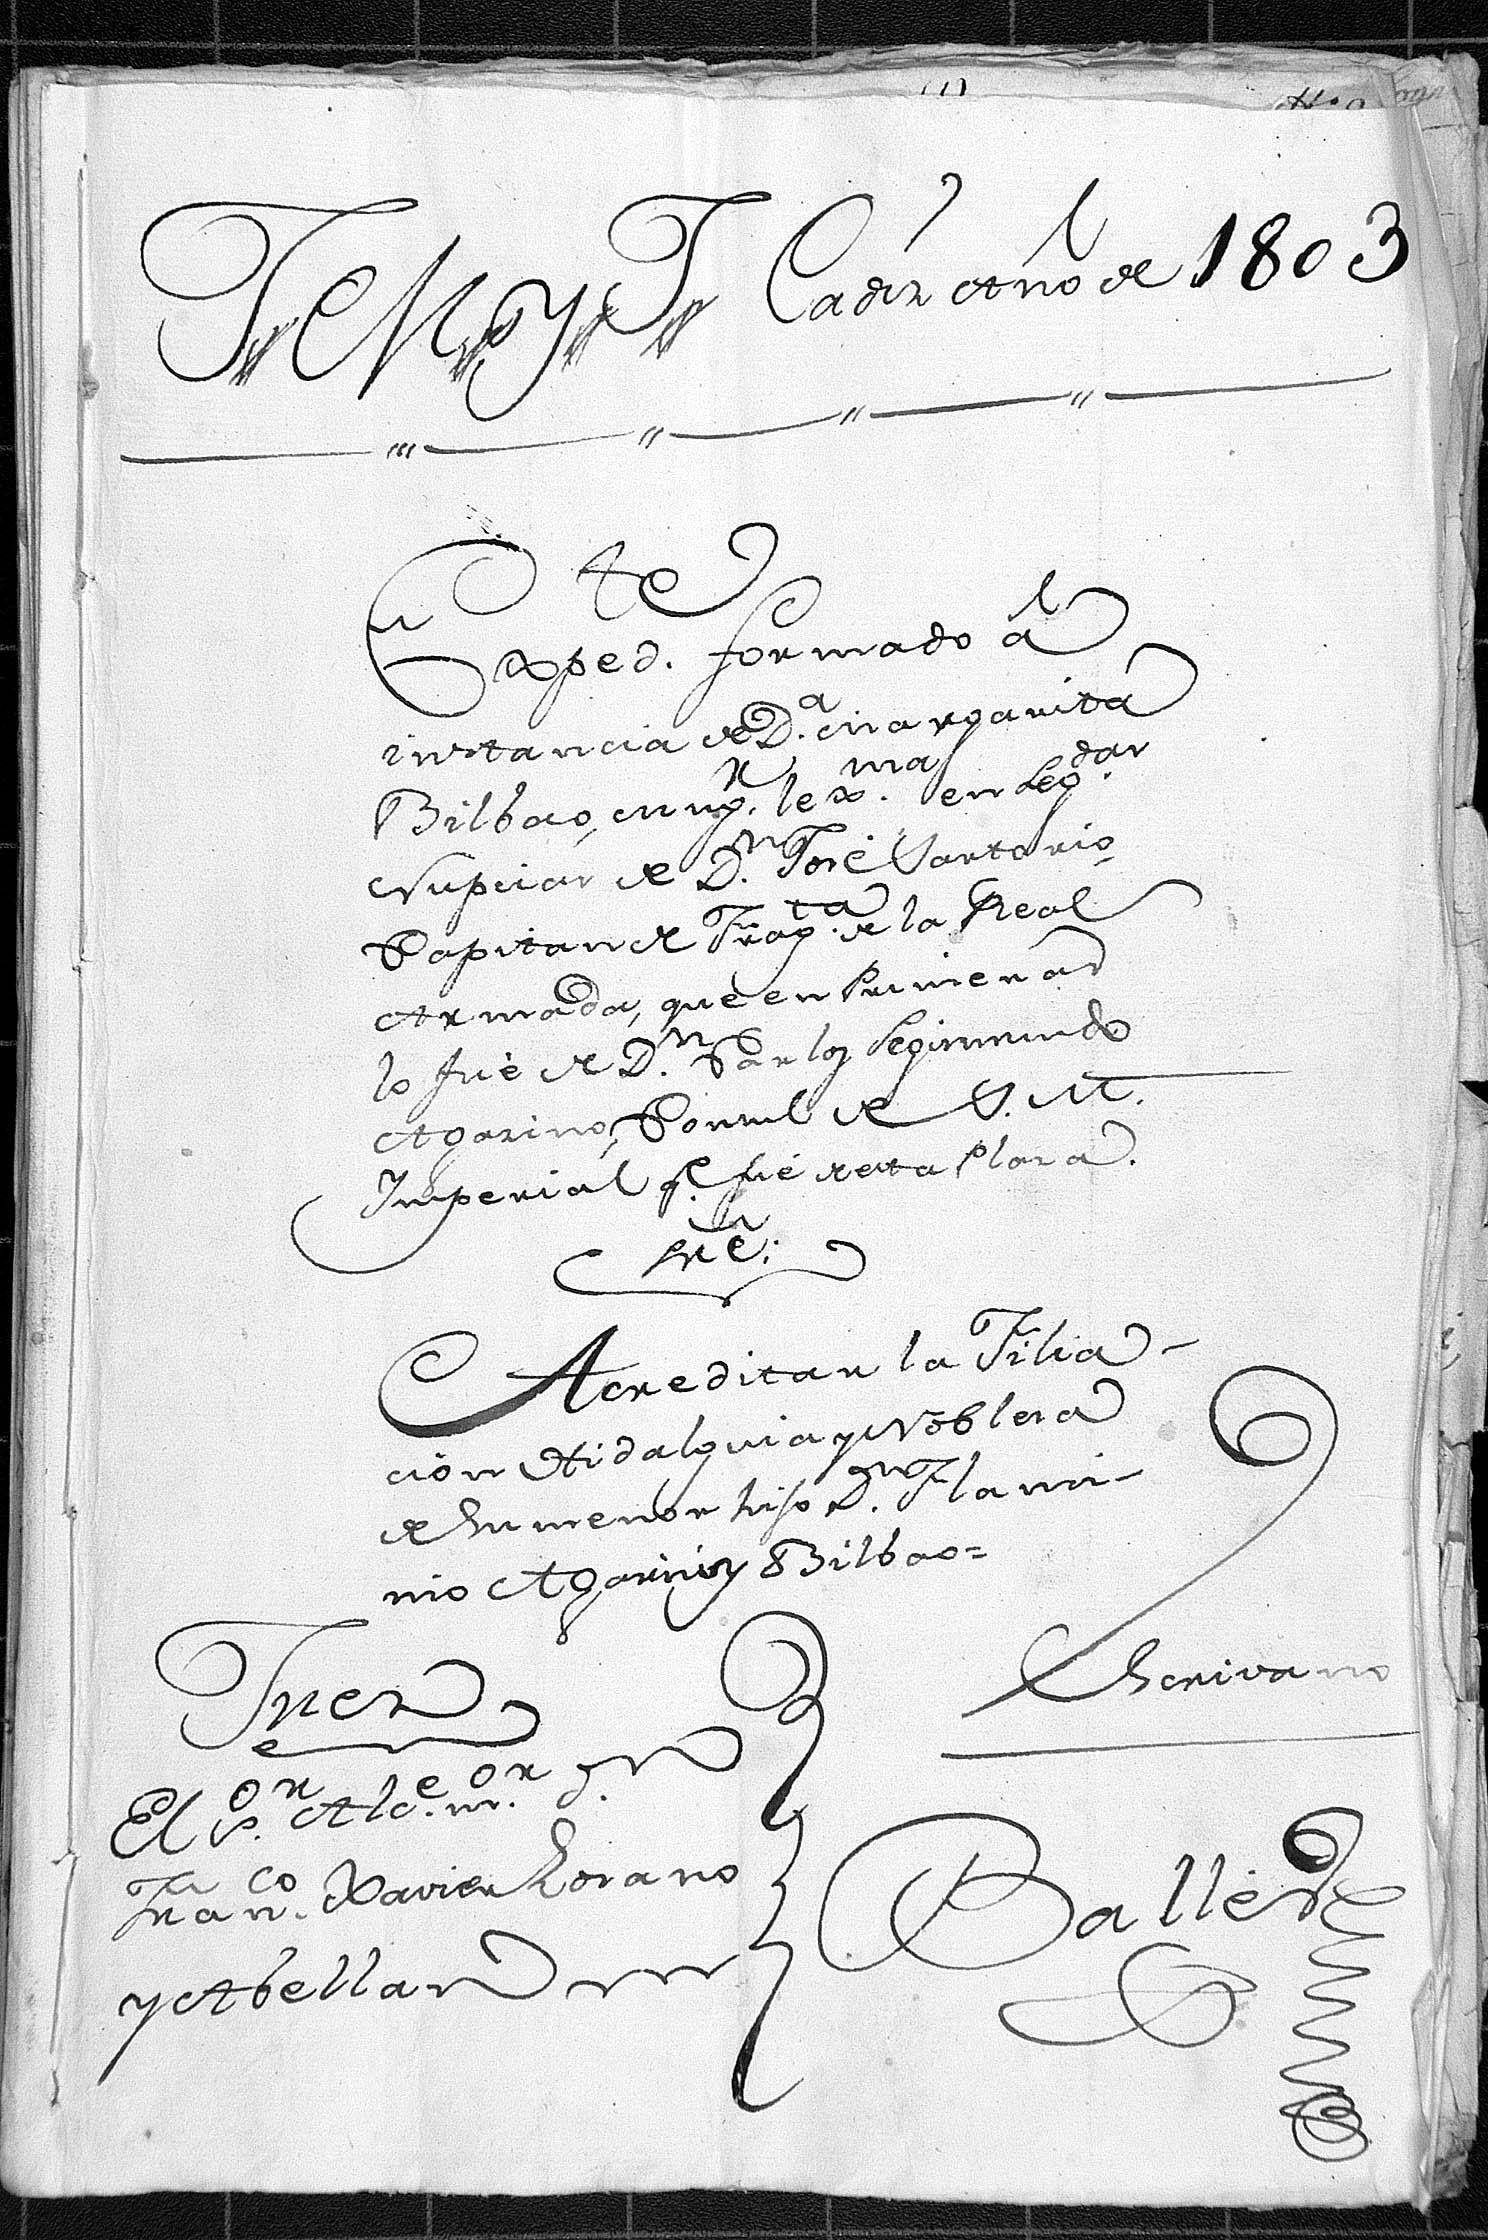 J. M. y J. Cadiz Año de 1803
Exped.te formado á
instancia de D.a Margarita
Bilbao, mug.r lex.ma en seg.das
Nupcias de D.n José Sartorio,
Capitan de Frag.ta de la Real
Armada, que en Primeras
lo fué de D.n Carlos Segismundo
Agarino, Consul de S. M.
Imperial q.e fué de esta Plaza.
Sre:
Acreditar la Filia-
ción Hidalguia y Nobleza
de su menor hijo D.n Flami-
nio Agarino y Bilbao=
Juez
El S.or Alc.e m.or D.n
Fran.co Xavier Lozano
y Abellan
Escrivano
Ballés